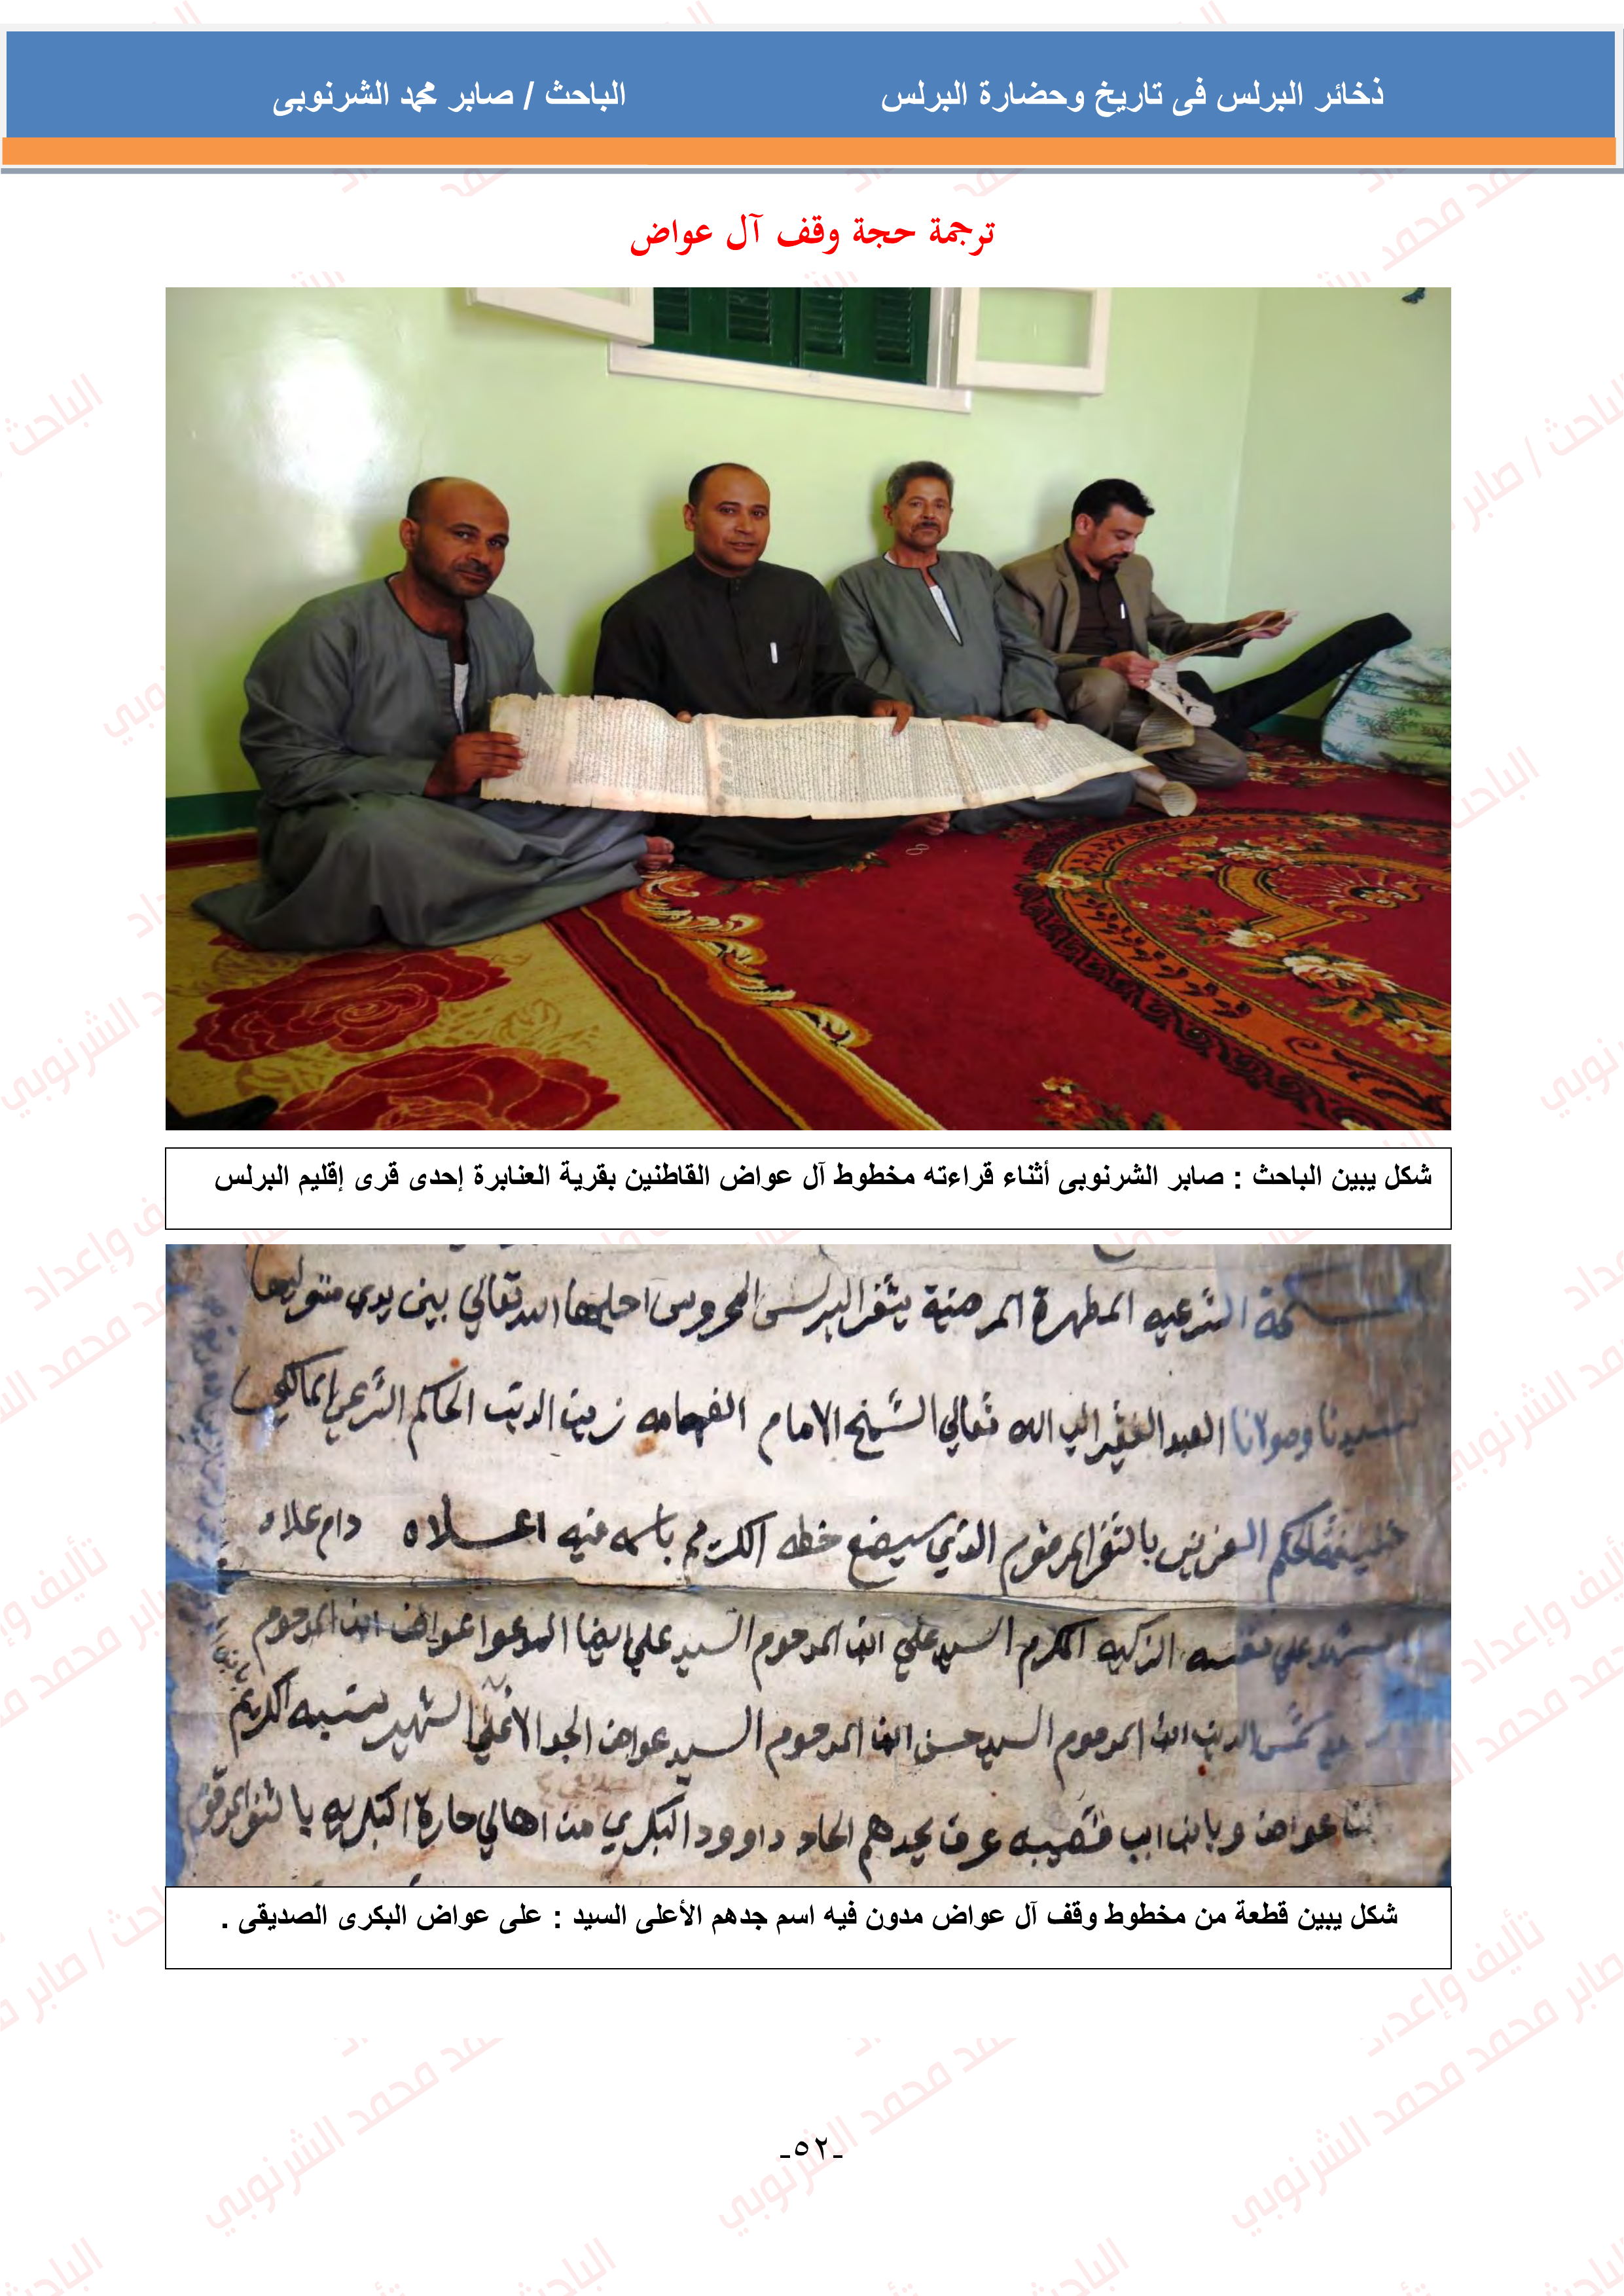 ذخائر البرلس فى تاريخ وحضارة البرلس
الباحث / صابر محمد الشرنوبى
ترجمة حجة وقف آل عواض
شكل يبين الباحث : صابر الشرنوبى أثناء قراءته مخطوط آل عواض القاطنين بقرية العنابرة إحدى قرى إقليم البرلس
الشرعيه المطهرة المرضية بثغر البرلس المحروس الله تعالي بين يدي متوليها
سيدنا ومولانا العبد الفقير الي الله تعالي الشيخ الامام الفهامه زين الدين الحاكم الشرعي المالكي
خليفة الحكم العزيز بالثغر المرقوم الذي سيضع خطه الكريم باسمه فيه اعلاه دام علاه
اشهد علي نفسه الزكيه المكرم السيد علي ابن المرحوم السيد علي ايضا المدعوا عواض ابن المرحوم
شمس الدين ابن المرحوم السيد حسن ابن المرحوم السيد عواض الجد الاعلي الشهير نسبه الكريم
عواض وبابن ابي عرف بجدهم الحاد داوود البكري من اهالي حارة البكريه بالثغر المرقوم
شكل يبين قطعة من مخطوط وقف آل عواض مدون فيه اسم جدهم الأعلى السيد : على عواض البكرى الصديقى .
-٥٢-
تأليف وإعداد
الباحث / صابر محمد محمد الشرنوبي